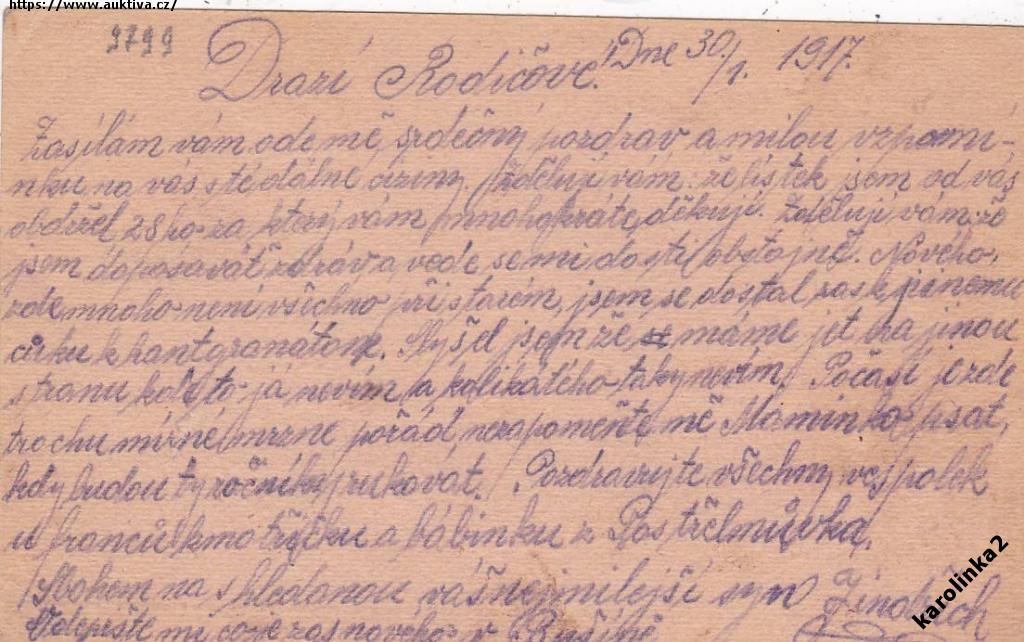 https://www.auktiva.cz/
9799
Drazí Rodičové! Dne 30/1. 1917.
Zasílám vám ode mě srdečný pozdrav a milou vzpomí-
nku na vás s té dálné ciziny. Zděluji vám že lístek jsem od vás
obdržel 28ho za který vám mnohokráte děkuji. Zděluji vám že
jsem doposavát zdráv a vede se mi dosti obstojně. Nového,
zde mnoho není všechno při starém, jsem se dostal zas k jinemu
k hantgranátom. Slyšel jsem že máme jet na jinou
stranu kde to já nevím a kolikátého taky nevím. Počasí je zde
trochu mírné, mrzne pořád nezapomeňte mě Maminko psat,
kdy budou ty ročníky rukovát. Pozdravujte všechny vespolek
u francu kmotřičku a bábinku z
Sbohem na shledanou váš nejmilejší syn
Odepište mi co je zas nového v
karolinka2